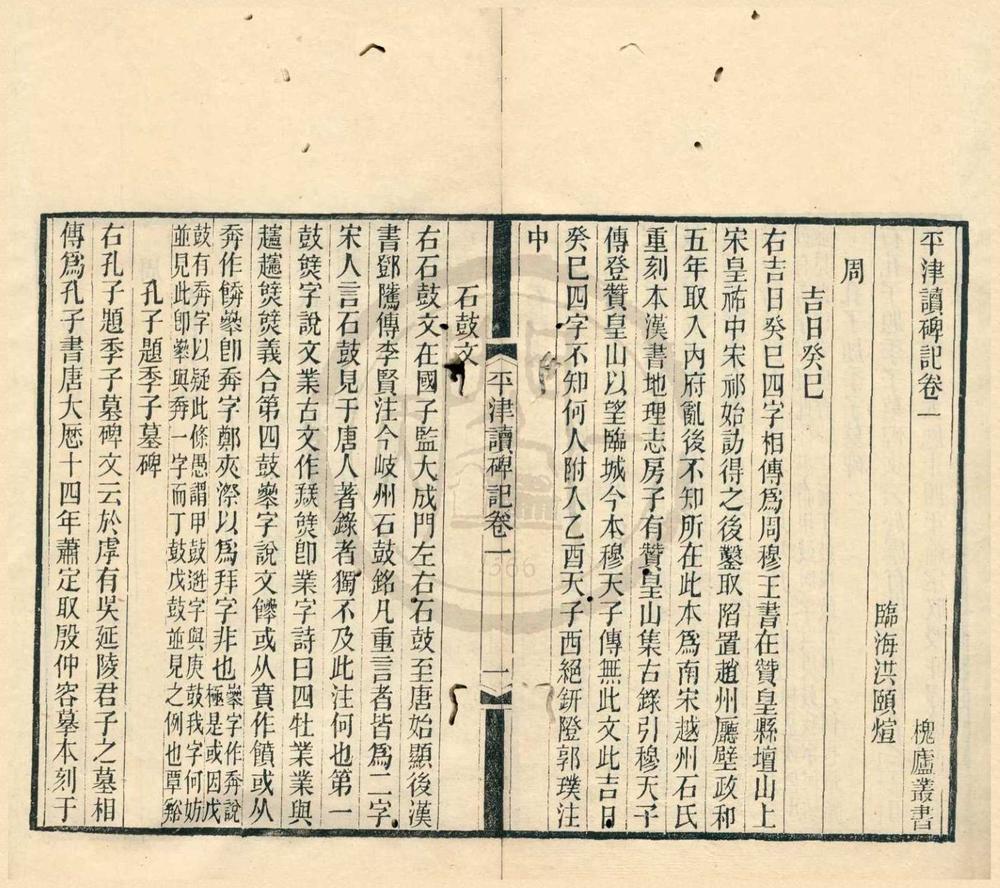 平津讀碑記卷一　槐廬叢書
臨海洪頤煊
周
吉日癸巳
右吉日癸巳四字相傳爲周穆王書在贊皇縣壇山上
宋皇祐中宋祁始訪得之後鑿取陷置趙州廳壁政和
五年取入內府亂後不知所在此本爲南宋越州石氏
重刻本漢書地理志房子有贊皇山集古錄引穆天子
傳登贊皇山以望臨城今本穆天子傳無此文此吉日
癸巳四字不知何人附入乙酉天子西絕鈃隥郭璞注
中
平津讀碑記卷一　一
石鼓文
右石鼓文在國子監大成門左右石鼓至唐始顯後漢
書鄧騭傳李賢注今岐州石鼓銘凡重言者皆爲二字
宋人言石鼓見于唐人著錄者獨不及此注何也第一
鼓字說文業古文作卽業字詩曰四牡業業與
趩趩義合第四鼓字說文或从賁作饙或从
奔作卽奔字鄭夾漈以爲拜字非也字作奔說
極是或因戊
鼓有奔字以疑此條愚謂甲鼓遊字與庚鼓我字何妨
並見此卽與奔一字而丁鼓戊鼓並見之例也覃谿
孔子題季子墓碑
右孔子題季子墓碑文云於虖有吳延陵君子之墓相
傳爲孔子書唐大厯十四年蕭定取殷仲容摹本刻于